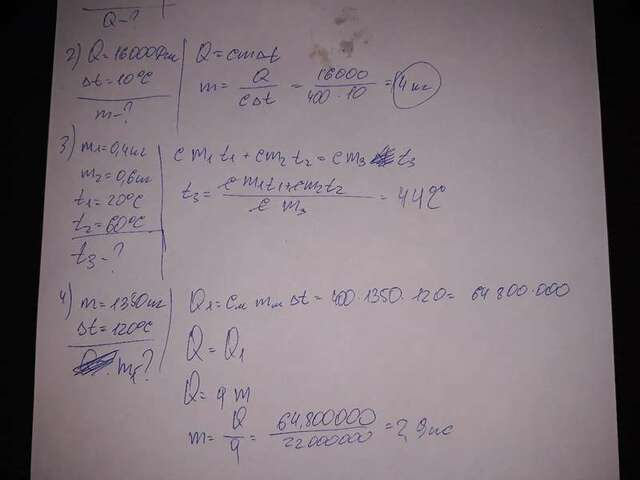 Q-?
2) Q=16000Дж
Δt=10°C
m-?
Q=cmΔt
m= Q/cΔt = 16000/400·10 = 4кг
3) m1=0,4кг
m2=0,6кг
t1=20°C
t2=60°C
t3-?
c m1 t1+cm2 t2=c m3 t3
t3= c m1t1+cm2t2/c m3 = 44°C
4) m=1350кг
Δt=120°C
m1?
Q1=cм mм Δt=400·1350·120= 64 800·000
Q=Q1
Q=q m
m= Q/q = 64.800000/22000000 =